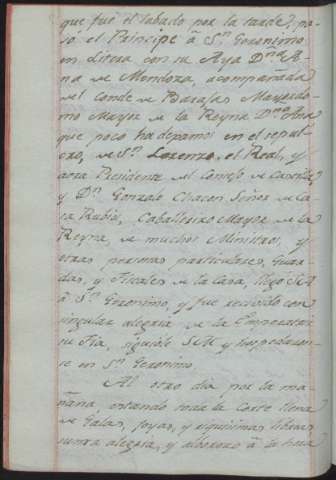 que fué el Sabado por la tarde, pa-
só el Principe â Sn. Geronimo
en Litera con su Aya Dna. A-
na de Mendoza, acompañada
del Conde de Barajas Mayordo-
mo Mayor de la Reyna Dna. Ana
que poco ha depamos en el sepul-
cro, de Sn. Lorenzo el Real, y
aora Presidente del Consejo de Castilla,
y Dn. Gonzalo Chacon Señor de Ca-
sa Rubio, Caballerizo Mayor de la
Reyna, de muchos Ministros, y
otras personas particulares, Guar-
das, y Oficiales de la Casa, llegó SA
â Sn. Geronimo, y fue recivido con
singular alegria de la Emperatriz
su Tia, siguiole SM y hospedaron-
se en Sn. Geronimo.
Al otro dia por la ma-
ñana, estando toda la Corte llena
de Galas, joyas, y riquisimas libreas
summa alegria, y alborozo â la hora